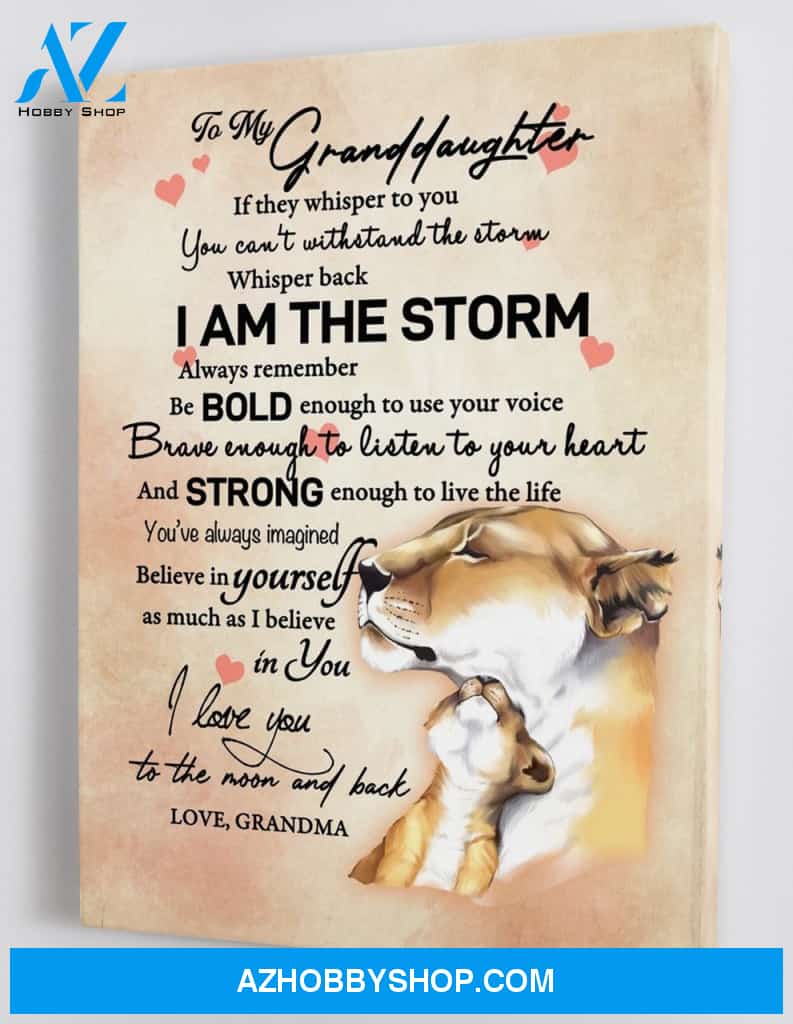 AZ
HOBBY SHOP
To My Granddaughter
If they whisper to you
You can't withstand the storm
Whisper back
I AM THE STORM
Always remember
Be BOLD enough to use your voice
Brave enough to listen to your heart
And STRONG enough to live the life
You've always imagined
Believe in yourself
as much as I believe
in You
I love you
to the moon and back
LOVE, GRANDMA
AZHOBBYSHOP.COM